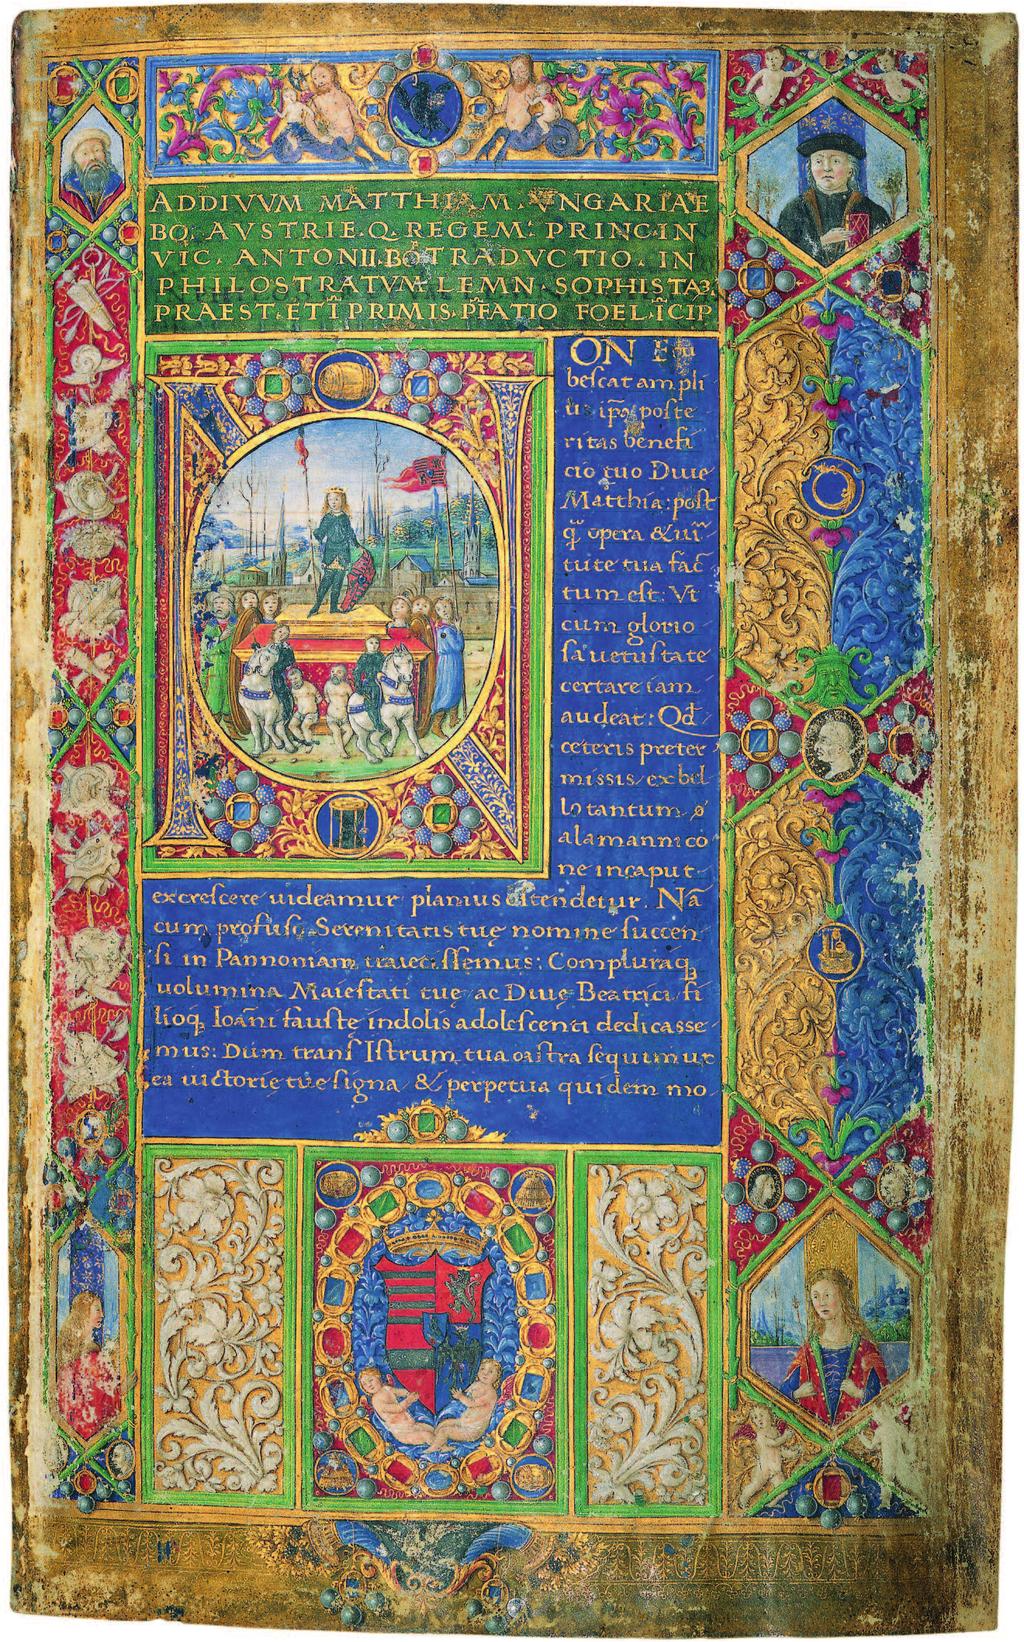 ADDIVVM MATTHIAM VNGARIAE
BOQ: AVSTRIE.Q.REGEM: PRINC.IN
VIC. ANTONII.BŌ TRADVCTIO. IN
PHILOSTRATVM LEMN. SOPHISTAȜ.
PRAEST. ET I̅ PRIMIS. PF̅ATIO FOEL. I̅CIP
N
ON
bescat ampli
us ip̅a poste
ritas benefi
cio tuo Diue
Matthia: post
q̅ opera & uir̅
tute tua fac̅
tum est: Vt
cum glorio
sa uetustate
certare iam
audeat: Qd̅
ceteris preter
missis ex bel
lo tantum
alamannico
ne in caput
excrescere uideamur planius ostendetur. Nā
cum profuso Serenitatis tuę nomine succen
si in Pannoniam traiecissemus: Compluraq
uolumina Maiestati tuę ac Diuę Beatrici fi
lioq Ioāni fauste indolis adolescenti dedicasse
mus: Dum trans Istrum tua castra sequimur
ea uictorię tuę signa & perpetua quidem mo